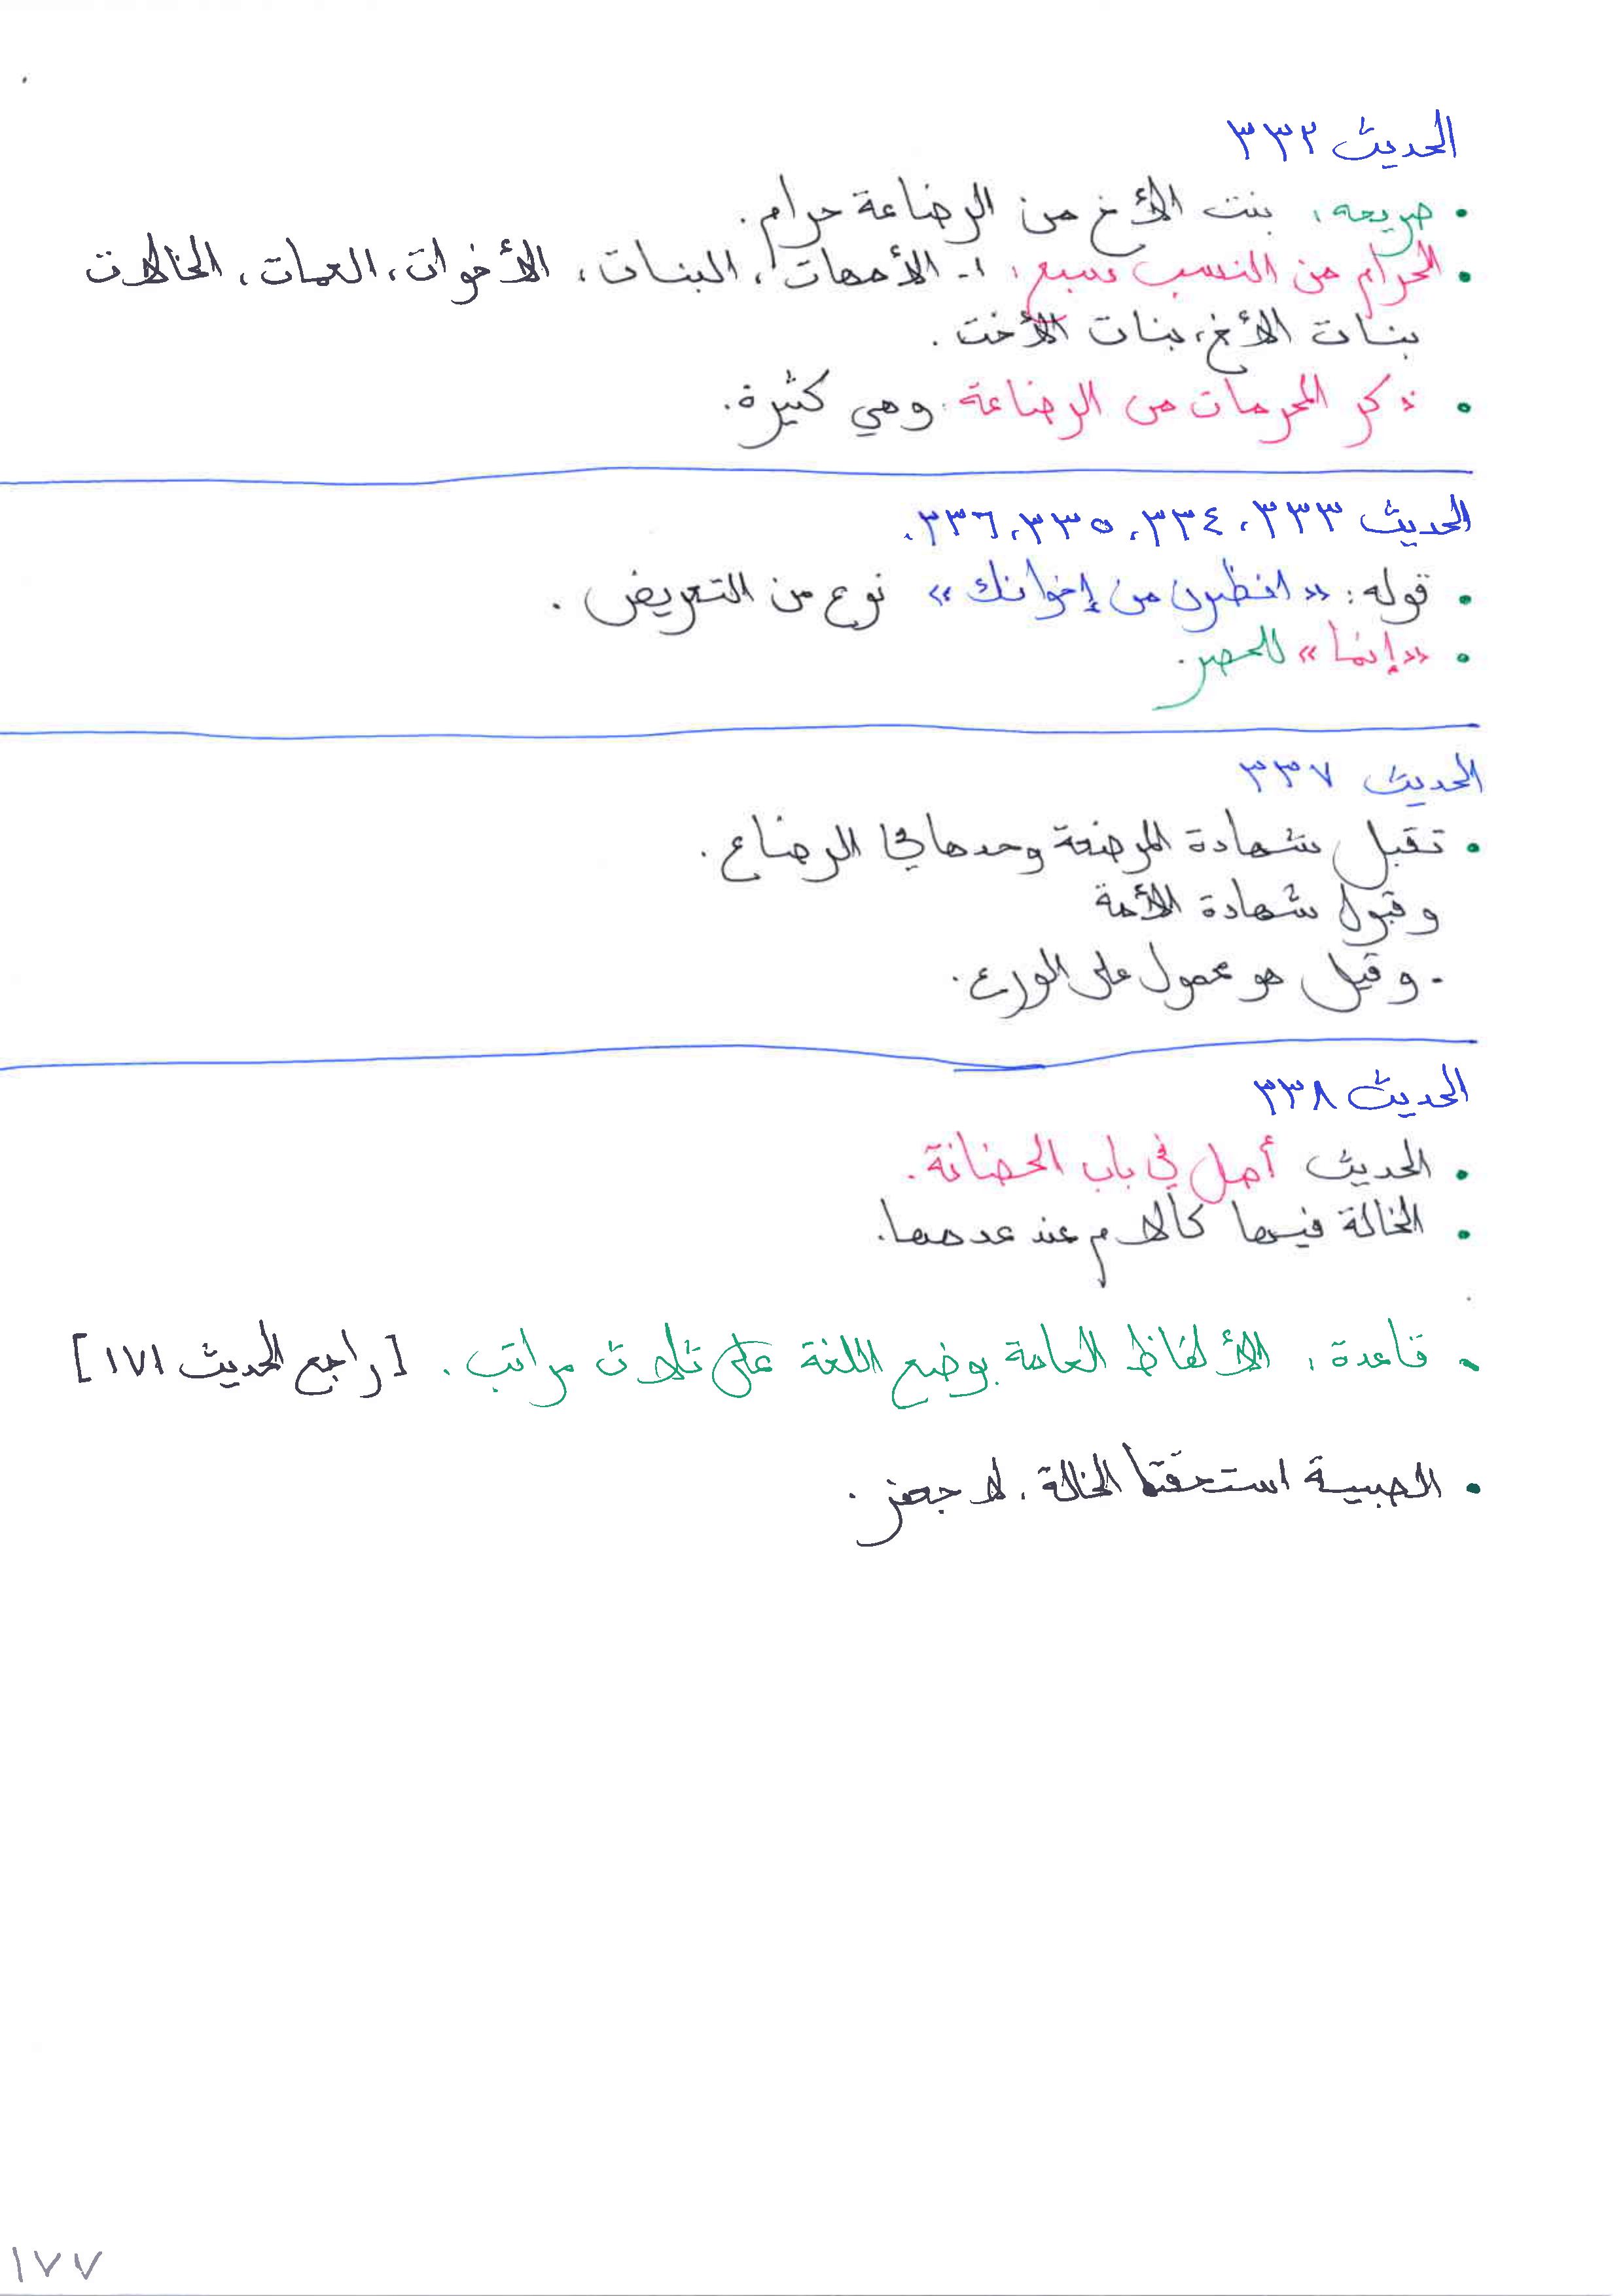 الحديث ٣٣٢
• صريحه: بنت الأخ من الرضاعة حرام.
• الحرام من النسب سبع: ١- الأمهات، البنات، الأخوات، العمات، الخالات
بنات الأخ، بنات الأخت.
• ذكر المحرمات من الرضاعة. وهي كثيرة.
الحديث ٣٣٣، ٣٣٤، ٣٣٥، ٣٣٦.
• قوله: «انظرن من إخوانك» نوع من التعريض.
• «إنما» للحصر.
الحديث ٣٣٧
• تقبل شهادة المرضعة وحدها في الرضاع.
وقبول شهادة الأمة
. وقيل هو محمول على الورع.
الحديث ٣٣٨
• الحديث أصل في باب الحضانة.
• الخالة فيها كالام عند عدمها.
• قاعدة: الألفاظ العامة بوضع اللغة على ثلاث مراتب. [راجع الحديث ١٧١]
• الصبية استحقتها الخالة، لا جعفر.
١٧٧